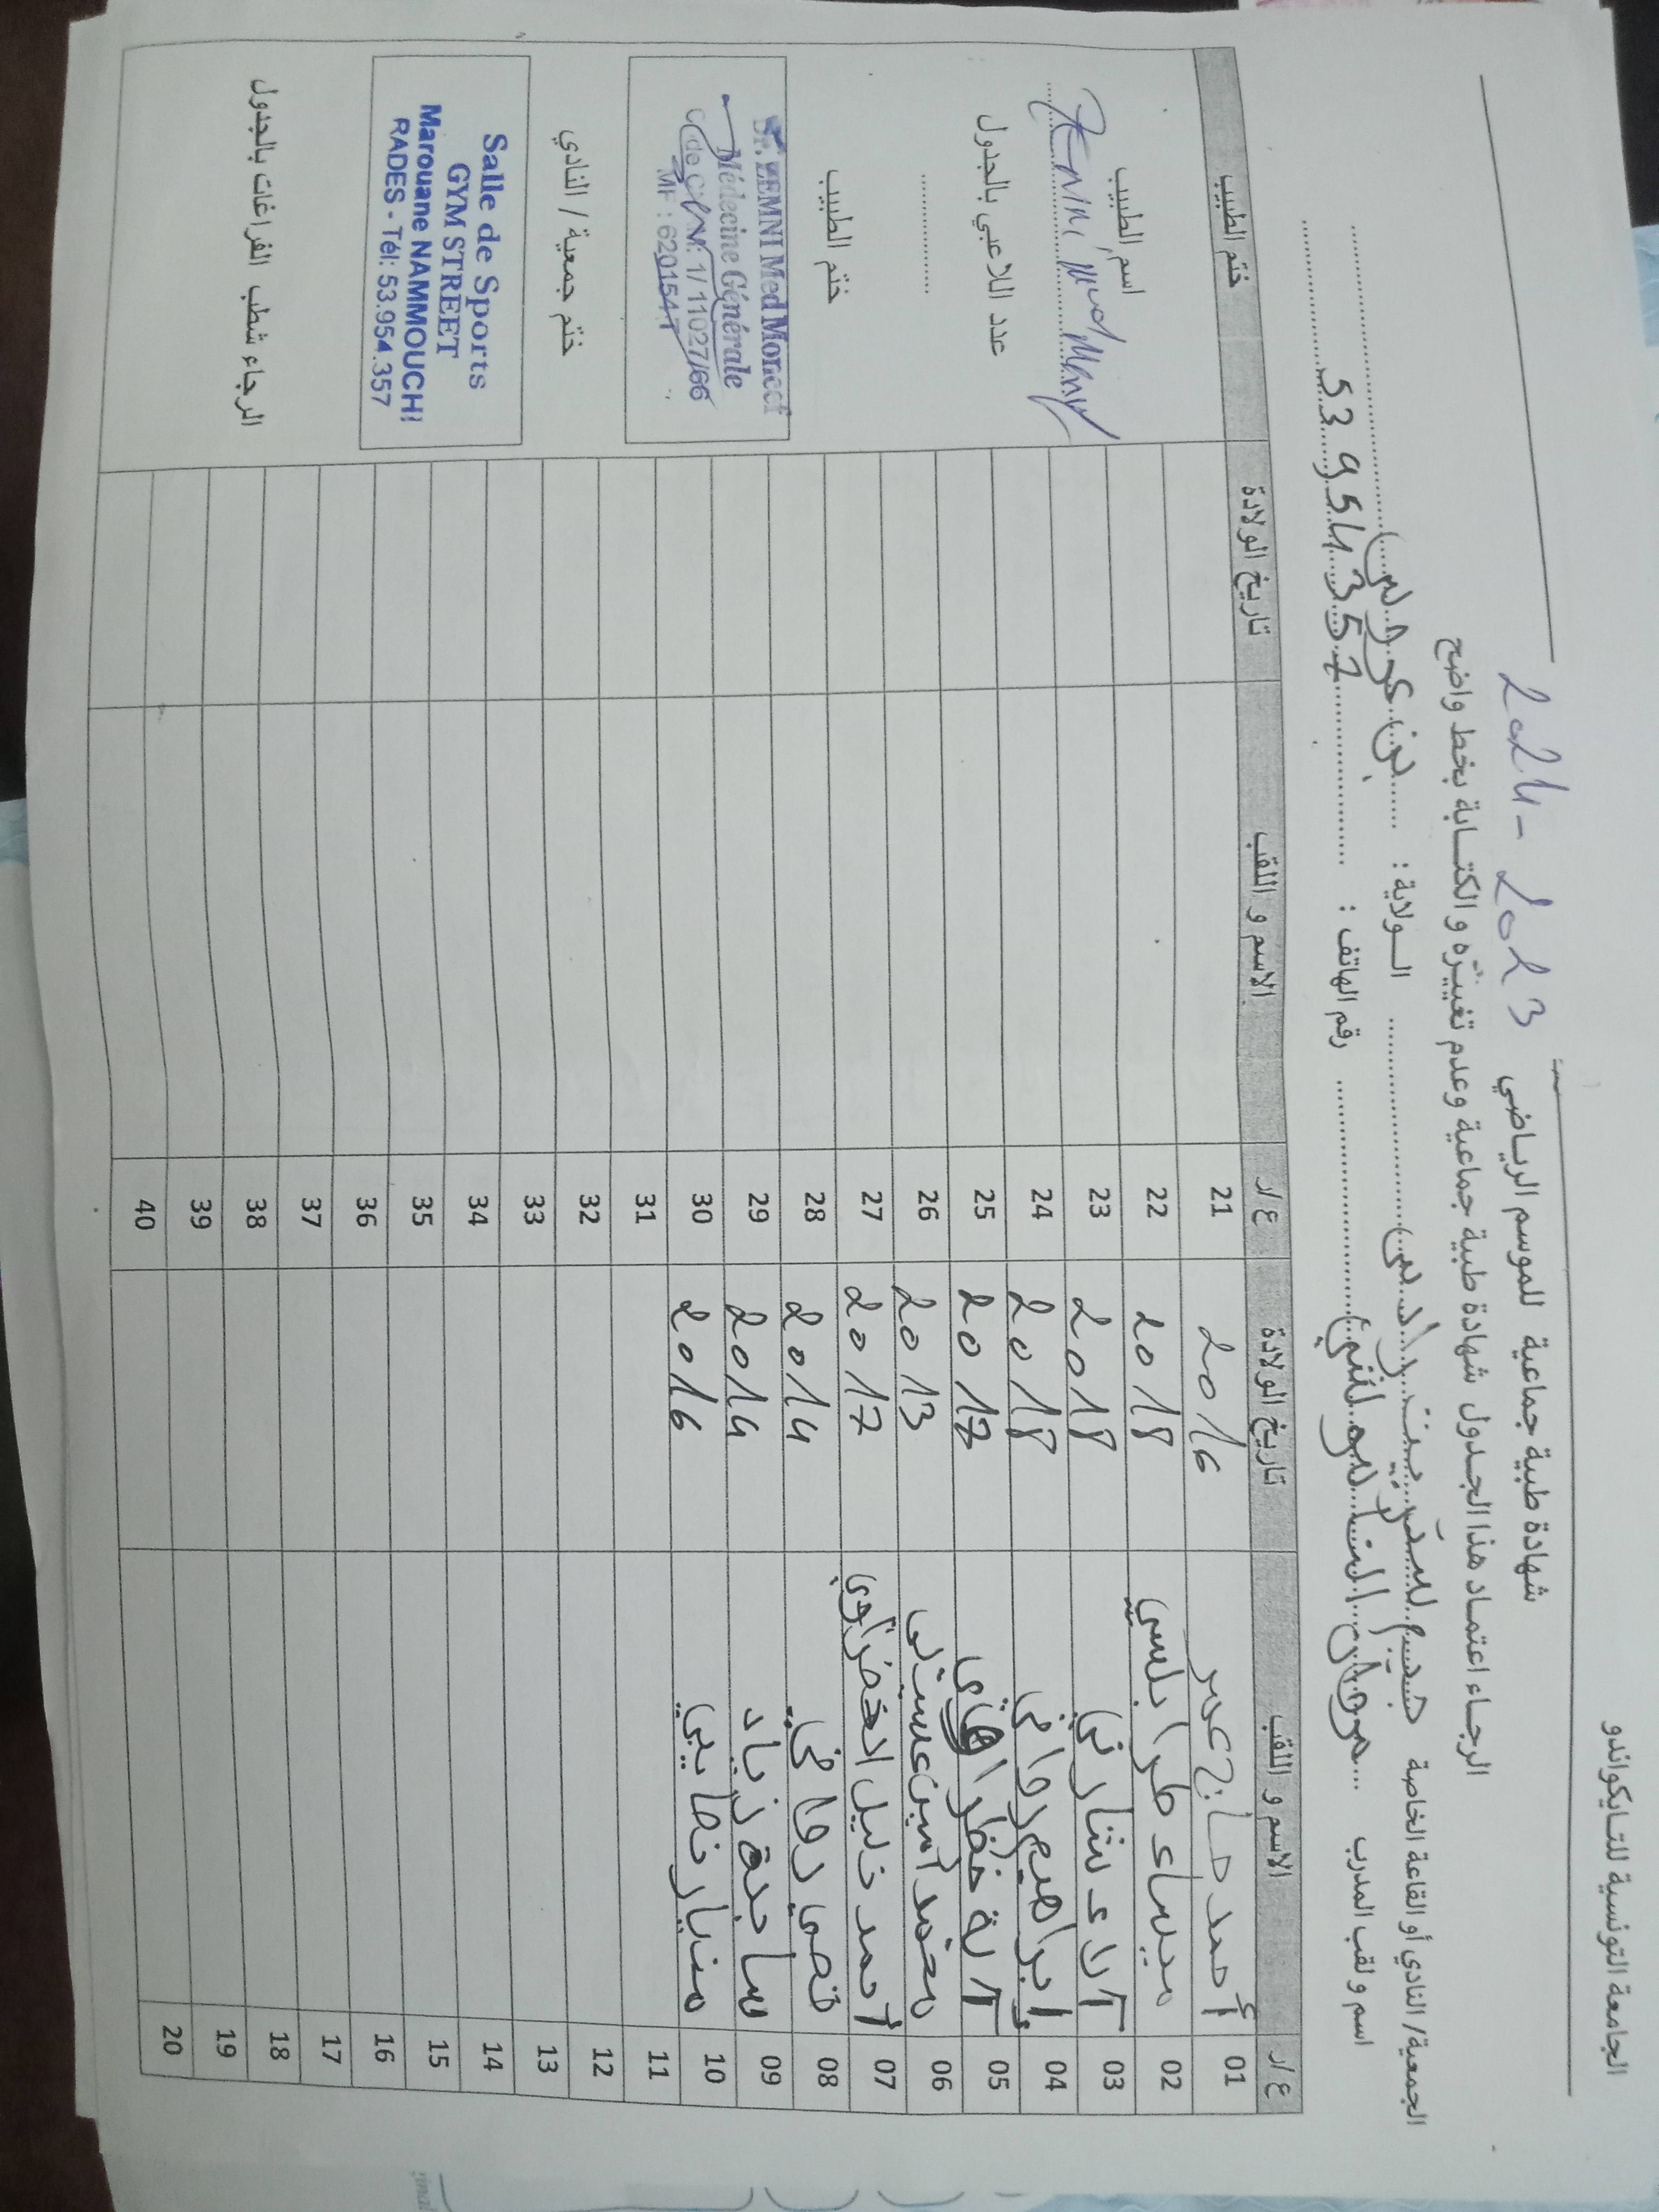 الجامعة التونسية للتايكواندو
شهادة طبية جماعية للموسم الرياضي 2023 - 2024
الرجاء اعتماد هذا الجدول شهادة طبية جماعية وعدم تغييره والكتابة بخط واضح
الجمعية/ النادي أو القاعة الخاصة الولاية : بن عروس
اسم و لقب المدرب مروان رقم الهاتف : 53 954 357
ع/ر الاسم و اللقب تاريخ الولادة ع/ر الاسم و اللقب تاريخ الولادة ختم الطبيب
01 أحمد حاج عمر 2016 21
02 ميساء طرابلسي 2018 22
03 آلاء شارني 2018 23
04 إبراهيم 2018 24
05 آية 2017 25
06 محمد أمين 2013 26
07 أحمد خليل الخضراوي 2017 27
08 قصي 2014 28
09 ساجدة زياد 2014 29
10 2016 30
11 31
12 32
13 33
14 34
15 35
16 36
17 37
18 38
19 39
20 40
اسم الطبيب
Zemni Med Moncef
عدد اللاعبي بالجدول
ختم الطبيب
Dr. ZEMNI Med Moncef
Médecine Générale
Code CNAM: 1/11027/66
MF : 620154T
ختم جمعية / النادي
Salle de Sports
GYM STREET
Marouane NAMMOUCHI
RADES - Tél: 53.954.357
الرجاء شطب الفراغات بالجدول